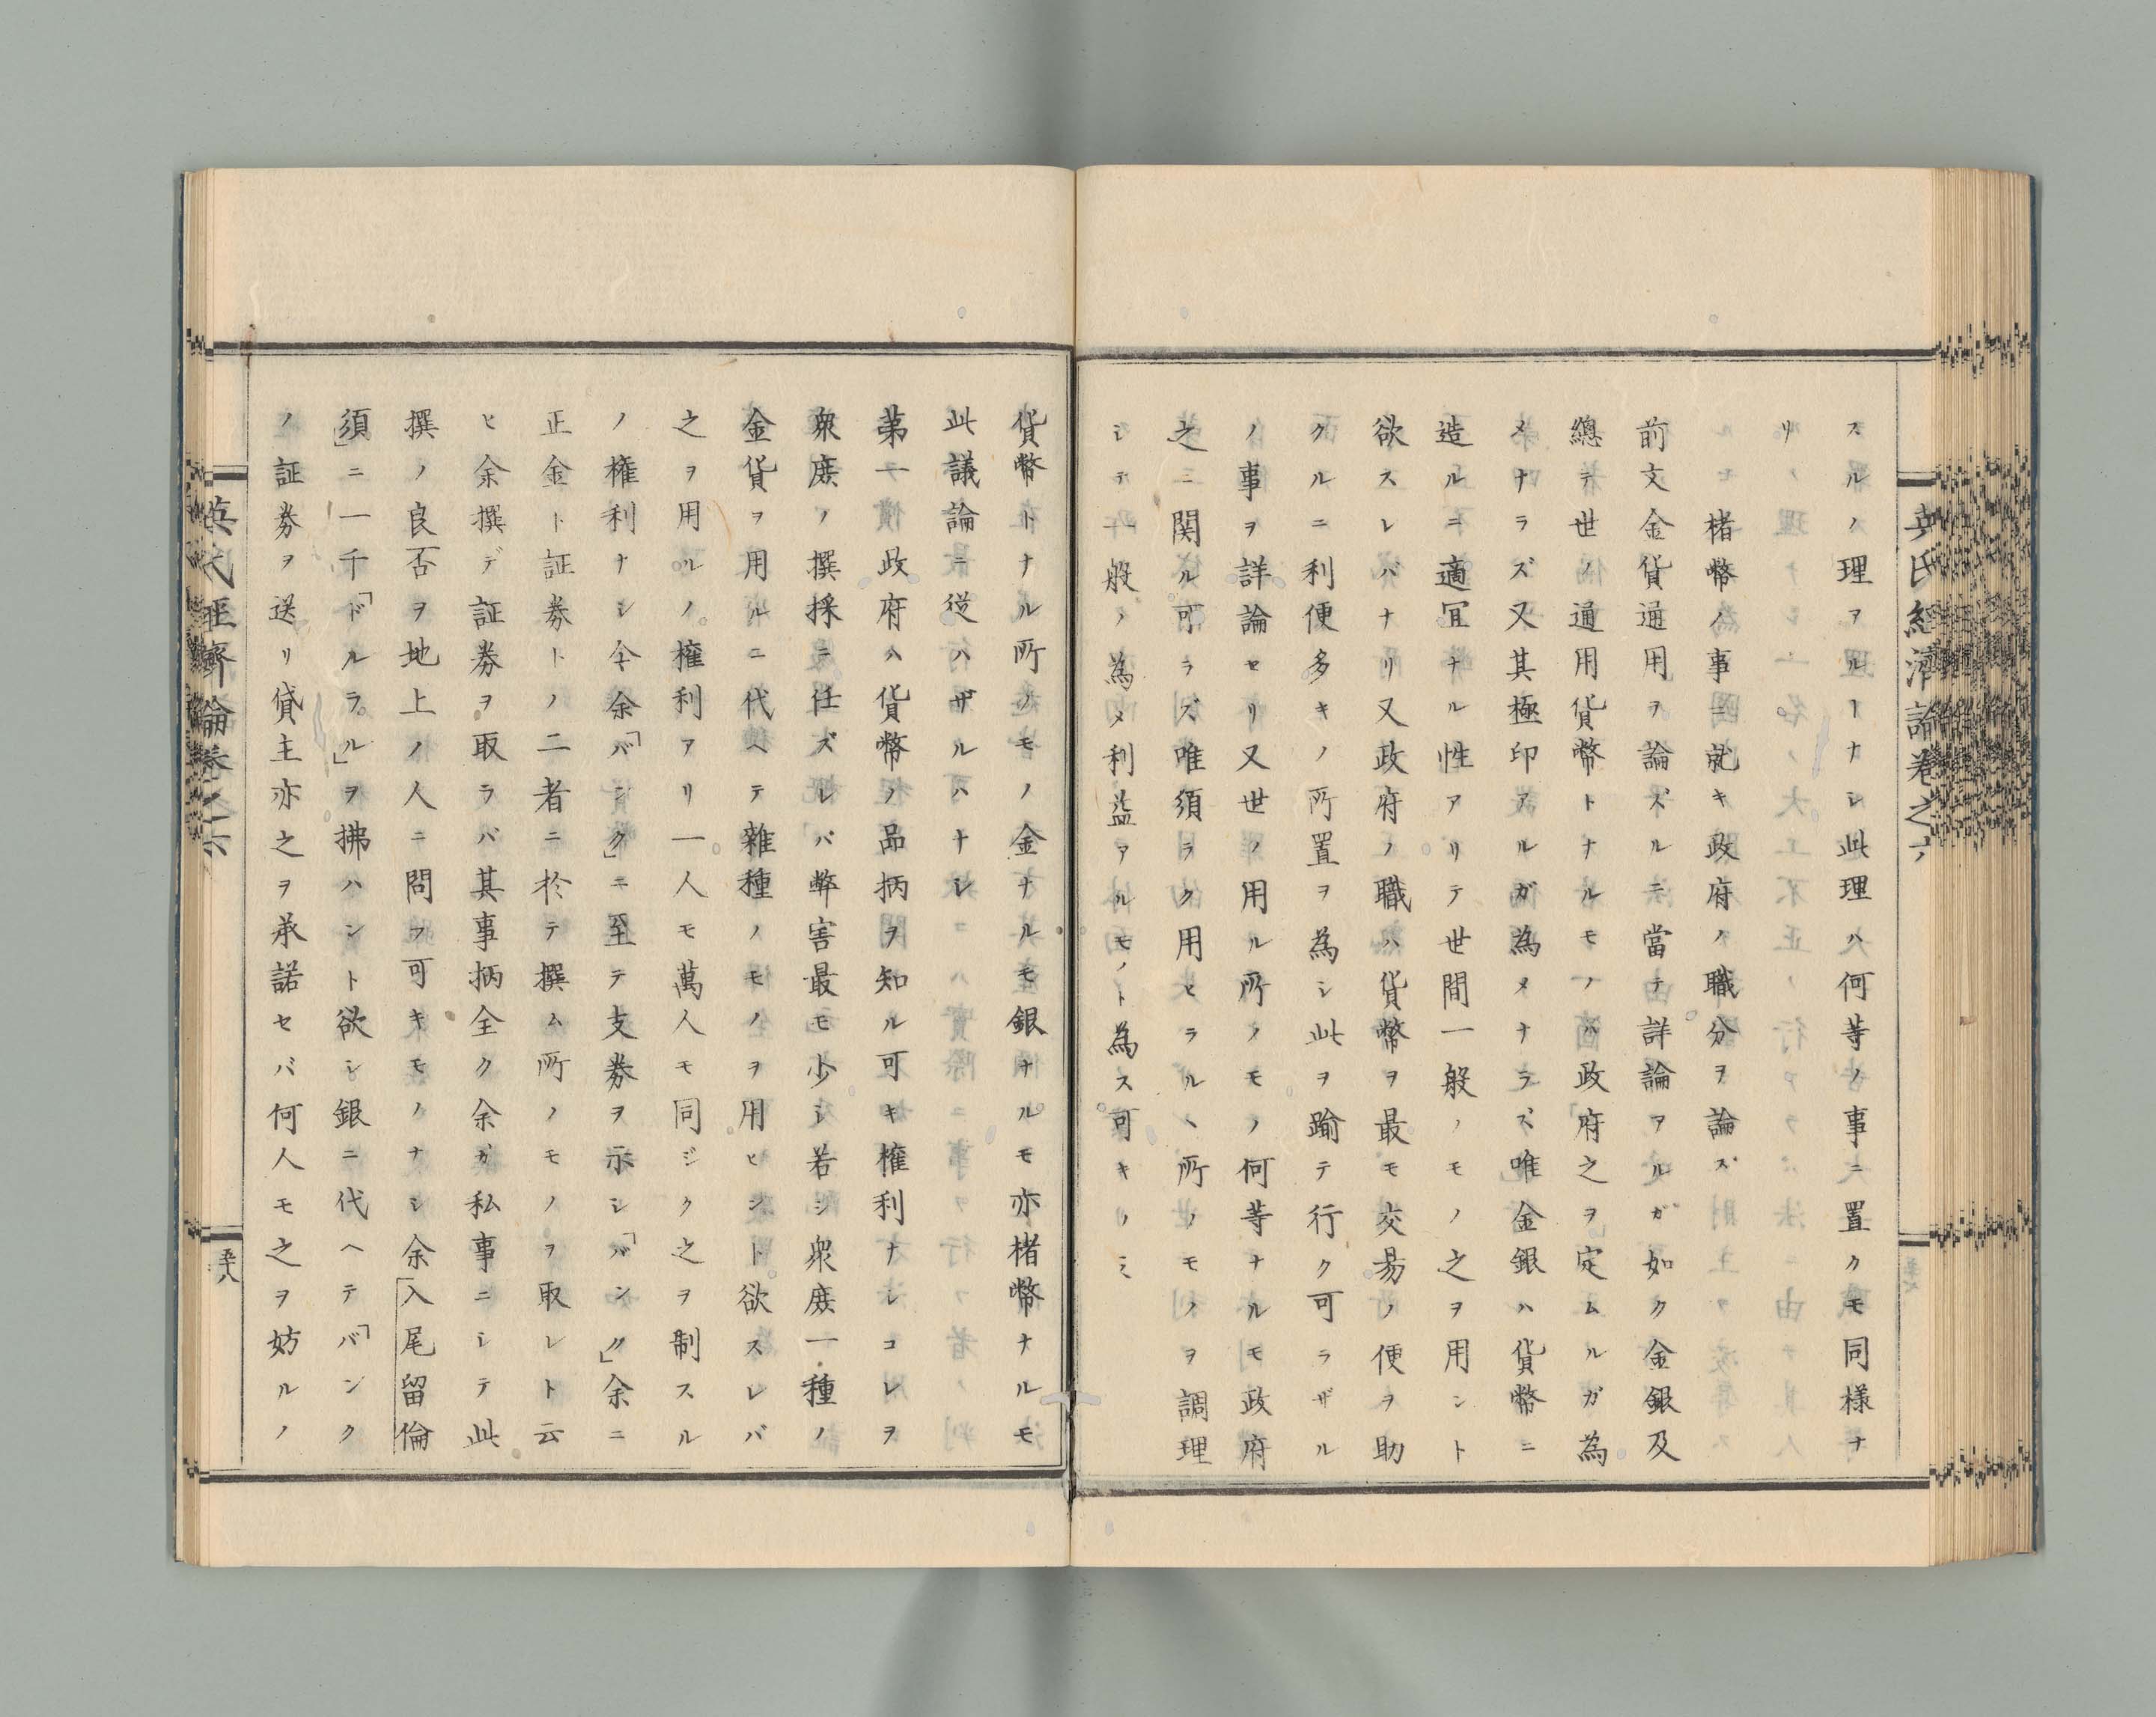 英氏經濟論卷之六
スルノ理アルーナシ此理ハ何等ノ事ニ置クモ同様ナ
リ
楮幣ノ事ニ就キ政府ノ職分ヲ論ズ
前文金貨通用ヲ論ズルニ當テ詳論アルガ如ク金銀及
總テ世ノ通用貨幣トナルモノハ政府之ヲ定ムルガ為
メナラズ又其極印アルガ為メナラズ唯金銀ハ貨幣ニ
造ルニ適冝ナル性アリテ世間一般ノモノ之ヲ用ント
欲スレバナリ又政府ノ職ハ貨幣ヲ最モ交易ノ便ヲ助
クルニ利便多キノ所置ヲ為シ此ヲ踰テ行ク可ラザル
ノ事ヲ詳論セリ又世ノ用ル所ノモノ何等ナルモ政府
之ニ関ル可ラズ唯須ラク用セラルヽ所ノモノヲ調理
シテ一般ノ為メ利益アルモノト為ス可キノミ
貨幣トナル所ノモノ金ナルモ銀ナルモ亦楮幣ナルモ
此議論ニ従ハザルハナシ
第一 政府ハ貨幣ノ品柄ヲ知ル可キ權利ナシコレヲ
衆庻ノ撰採ニ任ズレバ弊害最モ少シ若シ衆庻一種ノ
金貨ヲ用ルニ代ヘテ雜種ノモノヲ用ヒント欲スレバ
之ヲ用ルノ權利アリ一人モ萬人モ同ジク之ヲ制スル
ノ權利ナシ今余「バンク」ニ至テ支券ヲ示シ「バンク」余ニ
正金ト証券トノ二者ニ於テ撰ム所ノモノヲ取レト云
ヒ余撰デ証券ヲ取ラバ其事柄全ク余ガ私事ニシテ此
撰ノ良否ヲ地上ノ人ニ問フ可キモノナシ余「入尾留倫
須」ニ一千「ドルラル」ヲ拂ハント欲シ銀ニ代ヘテ「バンク
ノ証券ヲ送リ貸主亦之ヲ承諾セバ何人モ之ヲ妨ルノ
英氏經濟論卷之六
五十八